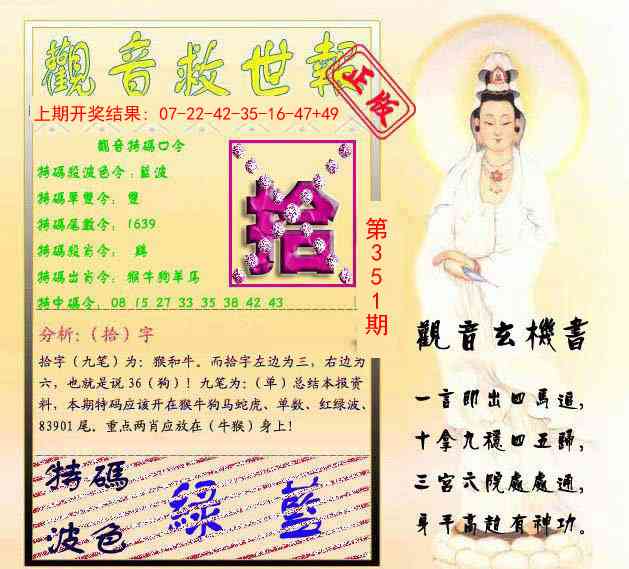 觀音救世報
正版
上期开奖结果：07-22-42-35-16-47+49
觀音特碼口令
特碼段波色令：藍波
特碼單雙令：雙
特碼尾數令：1639
特碼段肖令：鷄
特碼出肖令：猴牛狗羊馬
特中碼令：08 15 27 33 35 38 42 43
拾
第351期
分析：（拾）字
拾字（九笔）为：猴和牛。而拾字左边为三，右边为
六，也就是说36（狗）！九笔为：（单）总结本报资
料，本期特码应该开在猴牛狗马蛇虎、单数、红绿波、
83901尾。重点两肖应放在（牛猴）身上！
特碼
波色
綠藍
觀音玄機書
一言即出四馬追，
十拿九穩四五歸，
三宮六院處處通，
身平高超有神功。